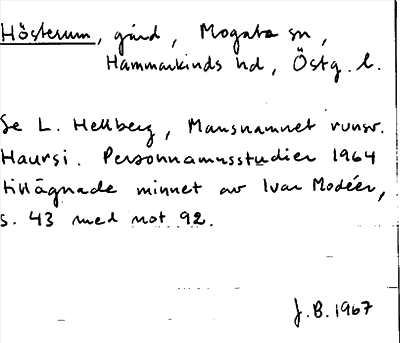 Hösterum, gård, Mogata sn,
Hammarkinds hd, Östg. l.
Se L. Hellberg, Mansnamnet runsv.
Haursi. Personnamnsstudier 1964
tillägnade minnet av Ivar Modéer,
s. 43 med not 92.
J.B. 1967